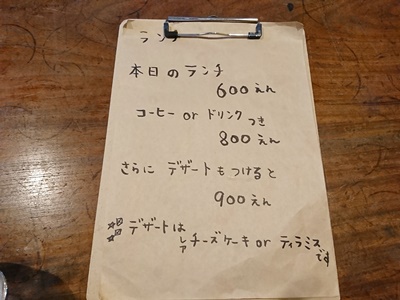 ランチ
本日のランチ
600えん
コーヒー or ドリンクつき
800えん
さらに デザートもつけると
900えん
デザートは
レアチーズケーキ or ティラミス
です